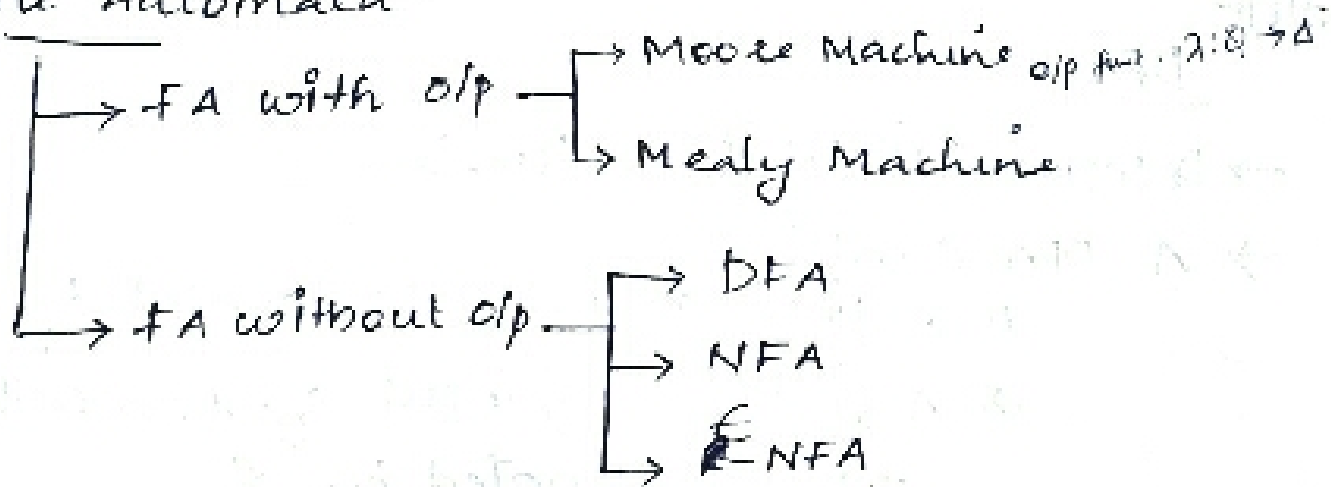 Automata
→ FA with o/p → Moore Machine o/p funt. λ: Q → Δ
→ Mealy Machine.
→ DFA
→ FA without o/p. → NFA
→ ENFA